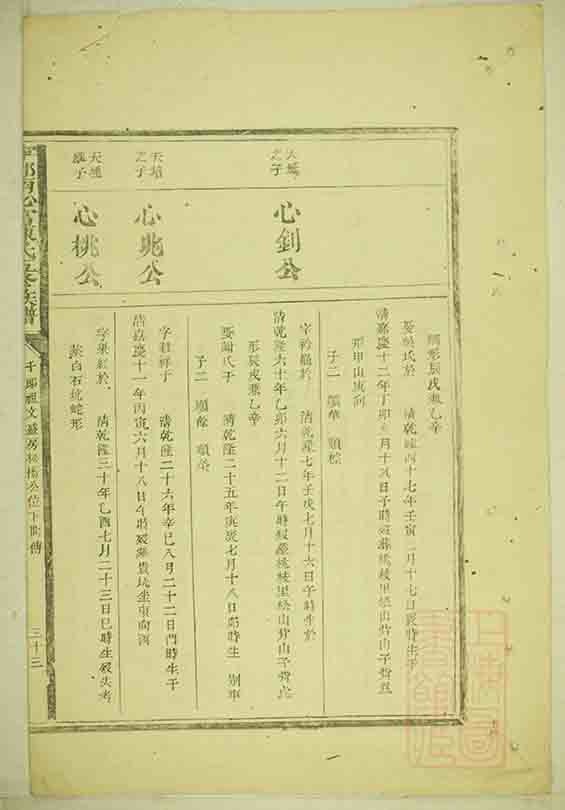 蝦形辰戌兼乙辛
娶吳氏於 清乾隆四十七年壬寅二月十七日辰時生于
清嘉慶十二年丁卯 月十八日子時歿葬桃枝里松山背山子背虎
形甲山庚向
子二 順華 順棕
天 之子
心釗公
字 於 清乾隆七年壬戌七月十六日午時生於
清乾隆六十年乙卯六月十二日午時歿葬桃枝里松山背山子背虎
形辰戌兼乙辛
娶謝氏于 清乾隆二十五年庚辰七月十八日 時生 別車
子二 順 順榮
天培之子
心兆公
字 祥于 清乾隆二十六年辛巳八月二十二日 時生于
清嘉慶十一年丙寅六月十八日午時歿葬貴坑坐東向酉
天 子
心桃公
字 紅於 清乾隆三十年乙酉七月二十三日巳時生歿失考
葬白石坑蛇形
氏五修族譜
千郎祖文盛房 公位下世傳
三十三
上海圖書館藏